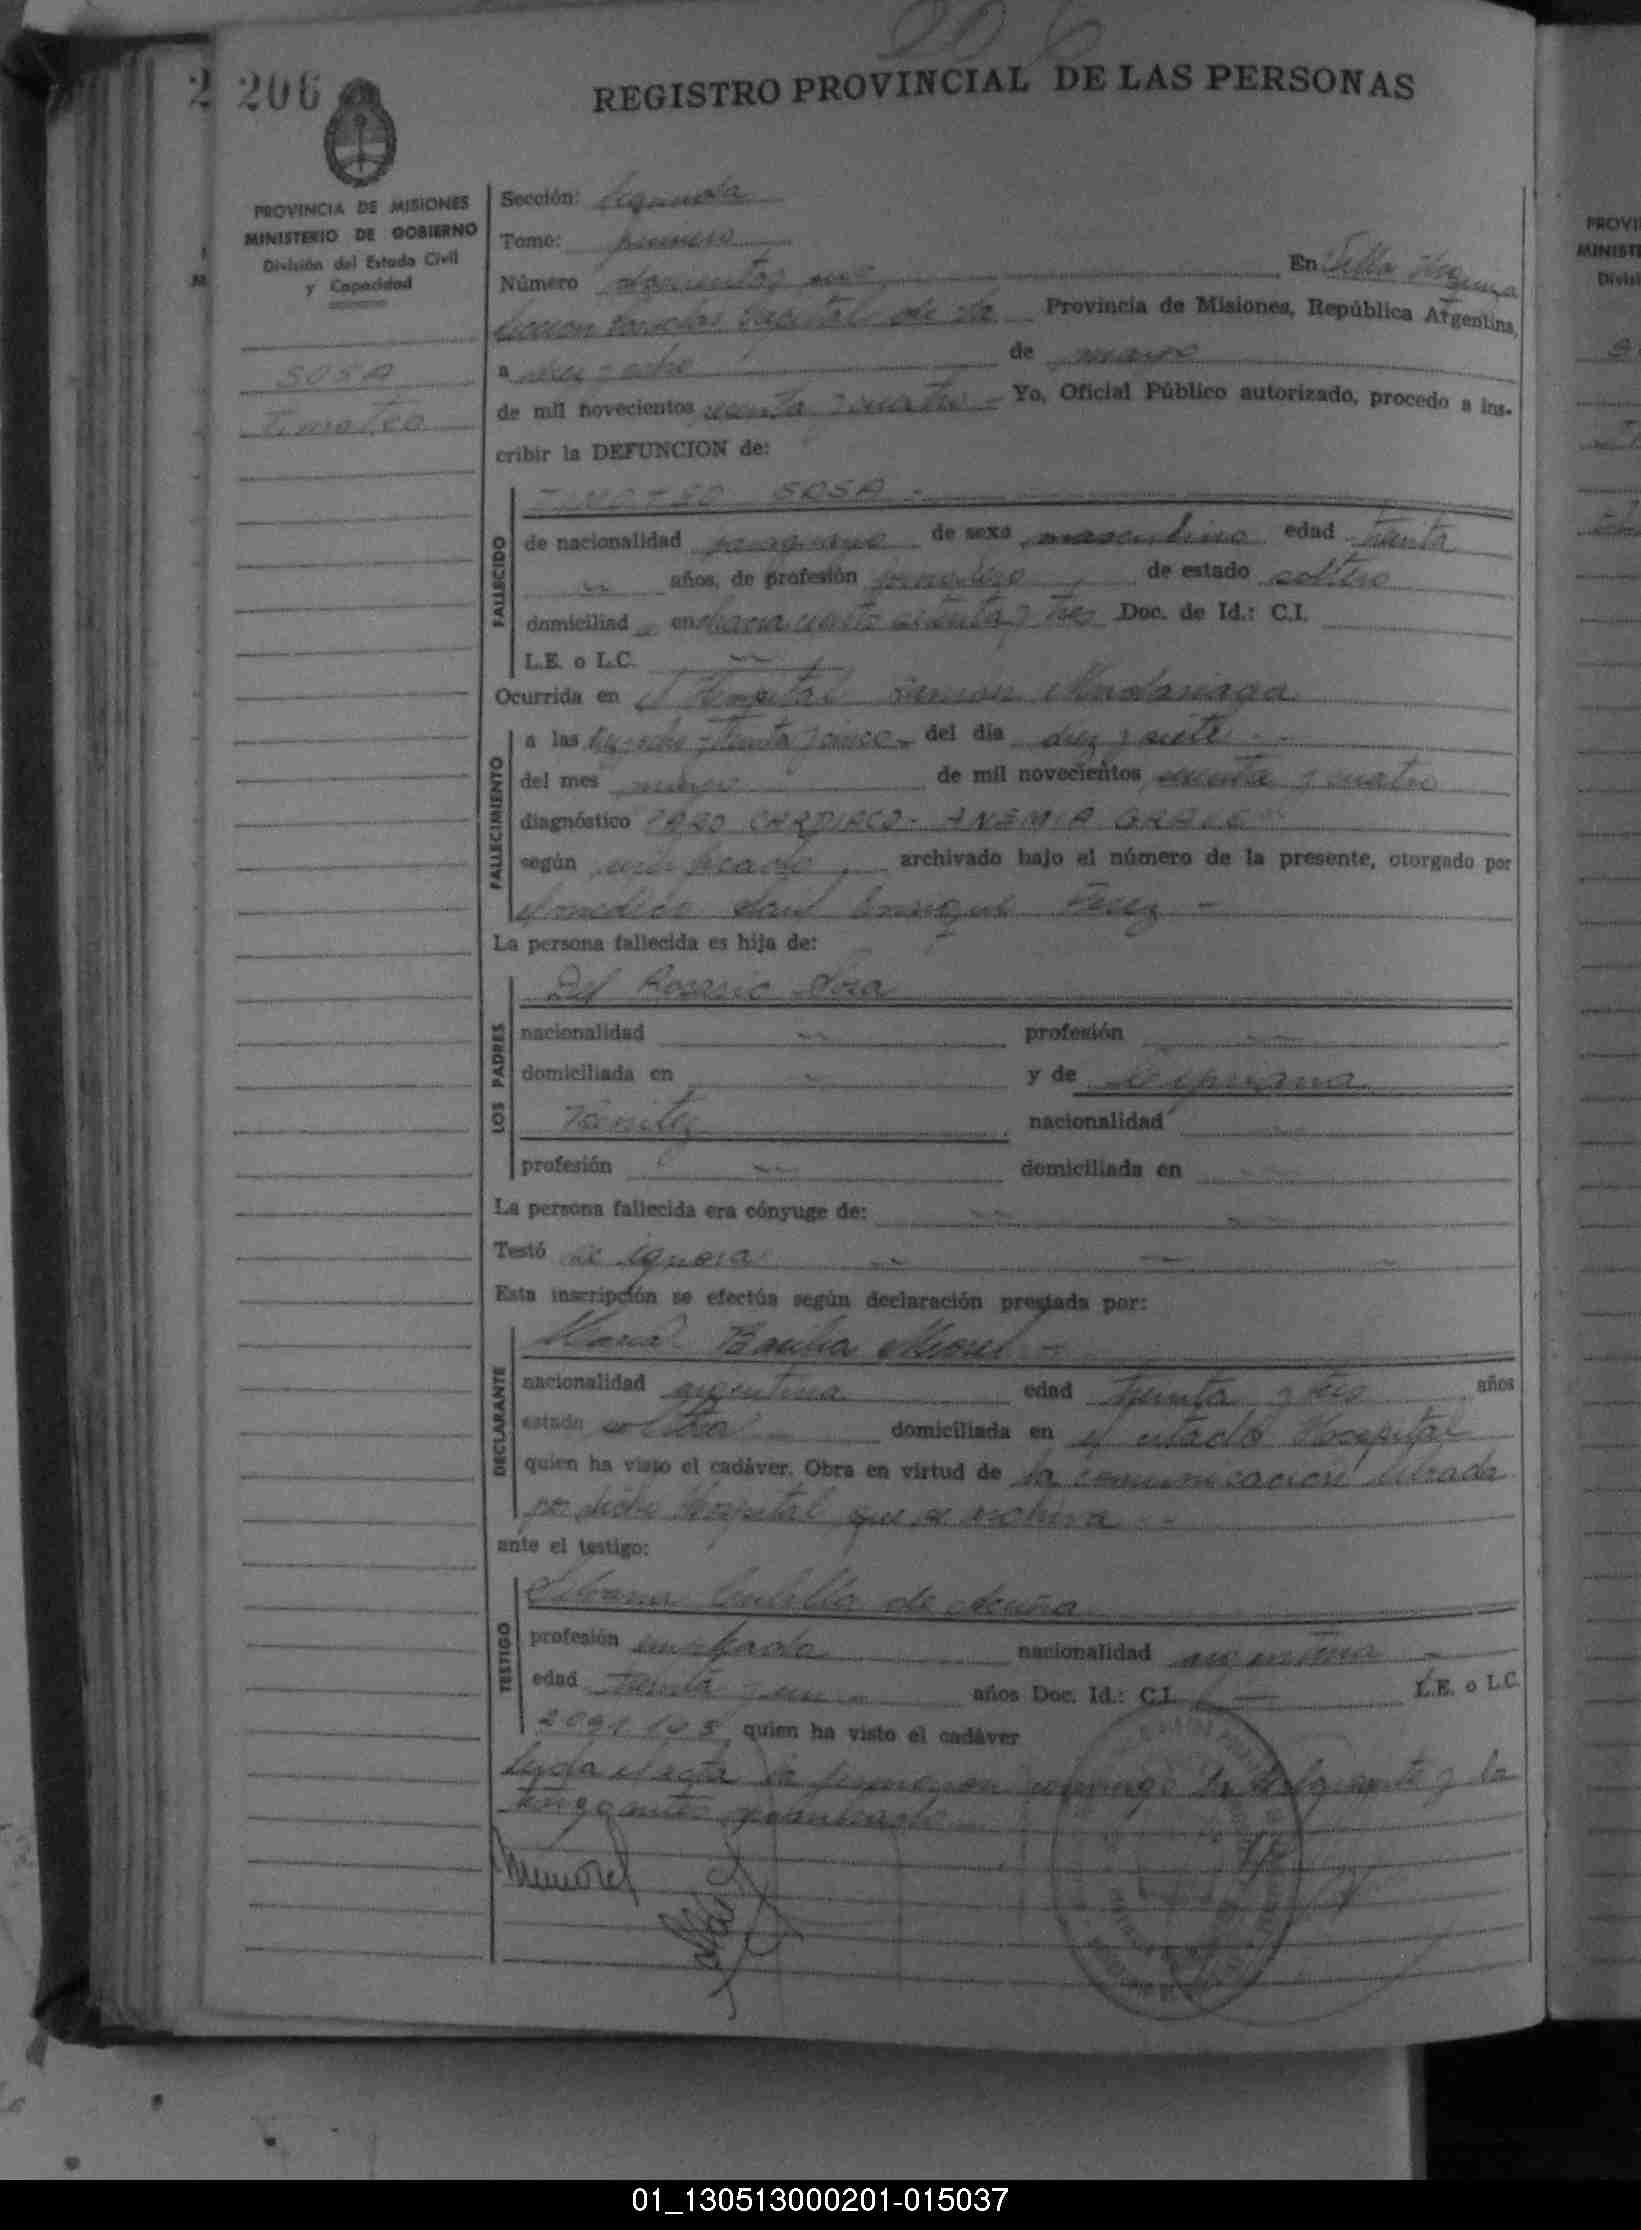 206
REGISTRO PROVINCIAL DE LAS PERSONAS
2 206
PROVINCIA DE MISIONES
MINISTERIO DE GOBIERNO
División del Estado Civil
y Capacidad
SOSA
Timoteo
Sección: Segunda
Tomo: primero
Número doscientos
En Villa Urquiza
Capital de Provincia de Misiones, República Argentina,
a diez y ocho de marzo
de mil novecientos sesenta y cuatro Yo, Oficial Público autorizado, procedo a ins-
cribir la DEFUNCION de:
FALLECIDO
TIMOTEO SOSA
de nacionalidad paraguayo de sexo masculino edad treinta
años, de profesión jornalero de estado soltero
domiciliad o en chacra ciento setenta y tres Doc. de Id.: C.I.
L.E. o L.C.
Ocurrida en el Hospital Ramon Madariaga
FALLECIMIENTO
a las diez y ocho y treinta y cinco del día diez y siete
del mes marzo de mil novecientos sesenta y cuatro
diagnóstico PARO CARDIACO - ANEMIA GRAVE
según certificado archivado bajo el número de la presente, otorgado por
el medico Enrique
La persona fallecida es hija de:
LOS PADRES
Del Rosario Sosa
nacionalidad profesión
domiciliada en y de Cipriana
Benitez nacionalidad
profesión domiciliada en
La persona fallecida era cónyuge de:
Testó se ignora
Esta inscripción se efectúa según declaración prestada por:
DECLARANTE
Maria Morel
nacionalidad argentina edad treinta y tres años
estado soltera domiciliada en el citado Hospital
quien ha visto el cadáver. Obra en virtud de la comunicación librada
por dicho Hospital que se archiva
ante el testigo:
TESTIGO
de Acuña
profesión empleada nacionalidad argentina
edad treinta y un años Doc. Id.: C.I. L.E. o L.C.
2091103 quien ha visto el cadáver
Leyda el acta la firmaron conmigo la declarante y la
PROVI
MINISTE
Divisi
01_130513000201-015037